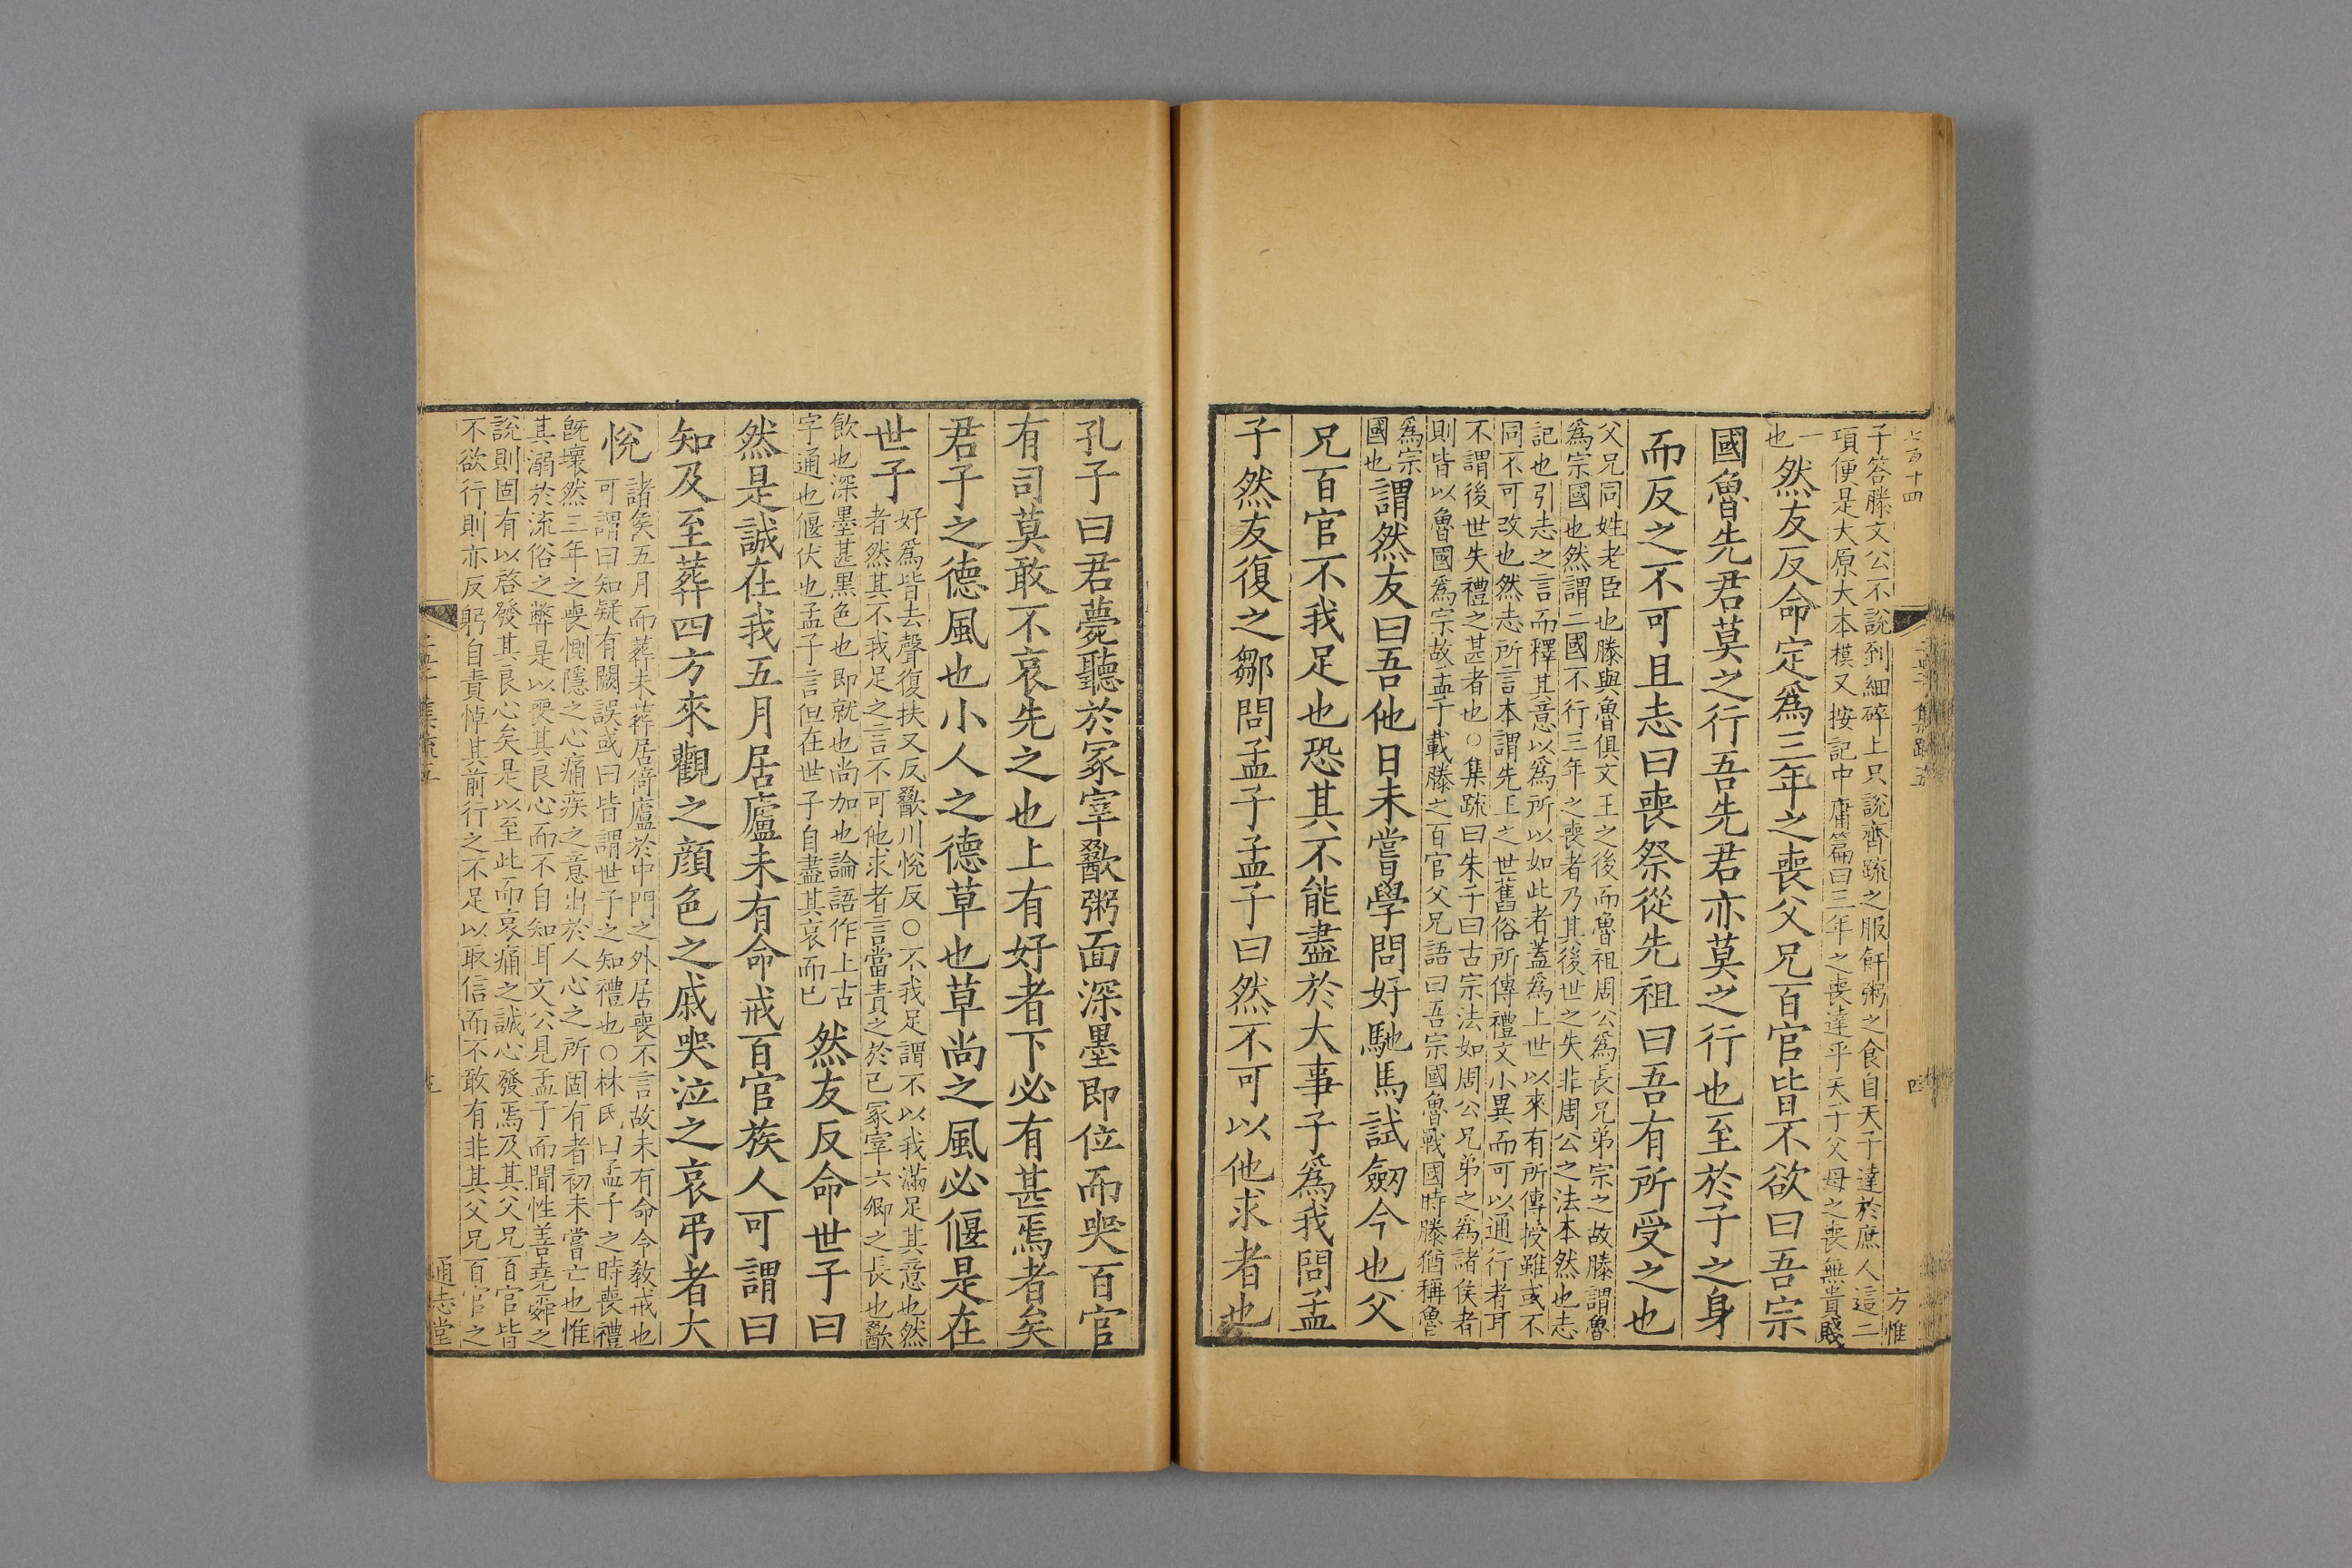 子答滕文公不說到細碎上只說齊疏之服飦粥之食自天子達於庶人這二
項便是大原大本模又按記中庸篇曰三年之喪達乎天子父母之喪無貴賤
一
也
然友反命定爲三年之喪父兄百官皆不欲曰吾宗
國魯先君莫之行吾先君亦莫之行也至於子之身
而反之不可且志曰喪祭從先祖曰吾有所受之也
父兄同姓老臣也滕與魯俱文王之後而魯祖周公爲長兄弟宗之故滕謂魯
爲宗國也然謂二國不行三年之喪者乃其後世之失非周公之法本然也志
記也引志之言而釋其意以爲所以如此者蓋爲上世以來有所傳授雖或不
同不可改也然志所言本謂先王之世舊俗所傳禮文小異而可以通行者耳
不謂後世失禮之甚者也○集疏曰朱子曰古宗法如周公兄弟之爲諸侯者
則皆以魯國爲宗故孟子載滕之百官父兄語曰吾宗國魯戰國時滕猶稱魯
爲宗
國也
謂然友曰吾他日未嘗學問好馳馬試劒今也父
兄百官不我足也恐其不能盡於大事子爲我問孟
子然友復之鄒問孟子孟子曰然不可以他求者也
孔子曰君薨聽於冢宰歠粥面深墨即位而哭百官
有司莫敢不哀先之也上有好者下必有甚焉者矣
君子之德風也小人之德草也草尚之風必偃是在
世子
好爲皆去聲復扶又反歠川悅反○不我足謂不以我滿足其意也然
者然其不我足之言不可他求者言當責之於己冢宰六卿之長也歠
飲也深墨甚黑色也即就也尚加也論語作上古
字通也偃伏也孟子言但在世子自盡其哀而已
然友反命世子曰
然是誠在我五月居廬未有命戒百官族人可謂曰
知及至葬四方來觀之顏色之戚哭泣之哀弔者大
悅
諸侯五月而葬未葬居倚廬於中門之外居喪不言故未有命令敎戒也
可謂曰知疑有闕誤或曰皆謂世子之知禮也○林氏曰孟子之時喪禮
旣壞然三年之喪惻隱之心痛疾之意出於人心之所固有者初未嘗亡也惟
其溺於流俗之弊是以喪其良心而不自知耳文公見孟子而聞性善堯舜之
說則固有以啓發其良心矣是以至此而哀痛之誠心發焉及其父兄百官皆
不欲行則亦反躬自責悼其前行之不足以取信而不敢有非其父兄百官之
通志堂